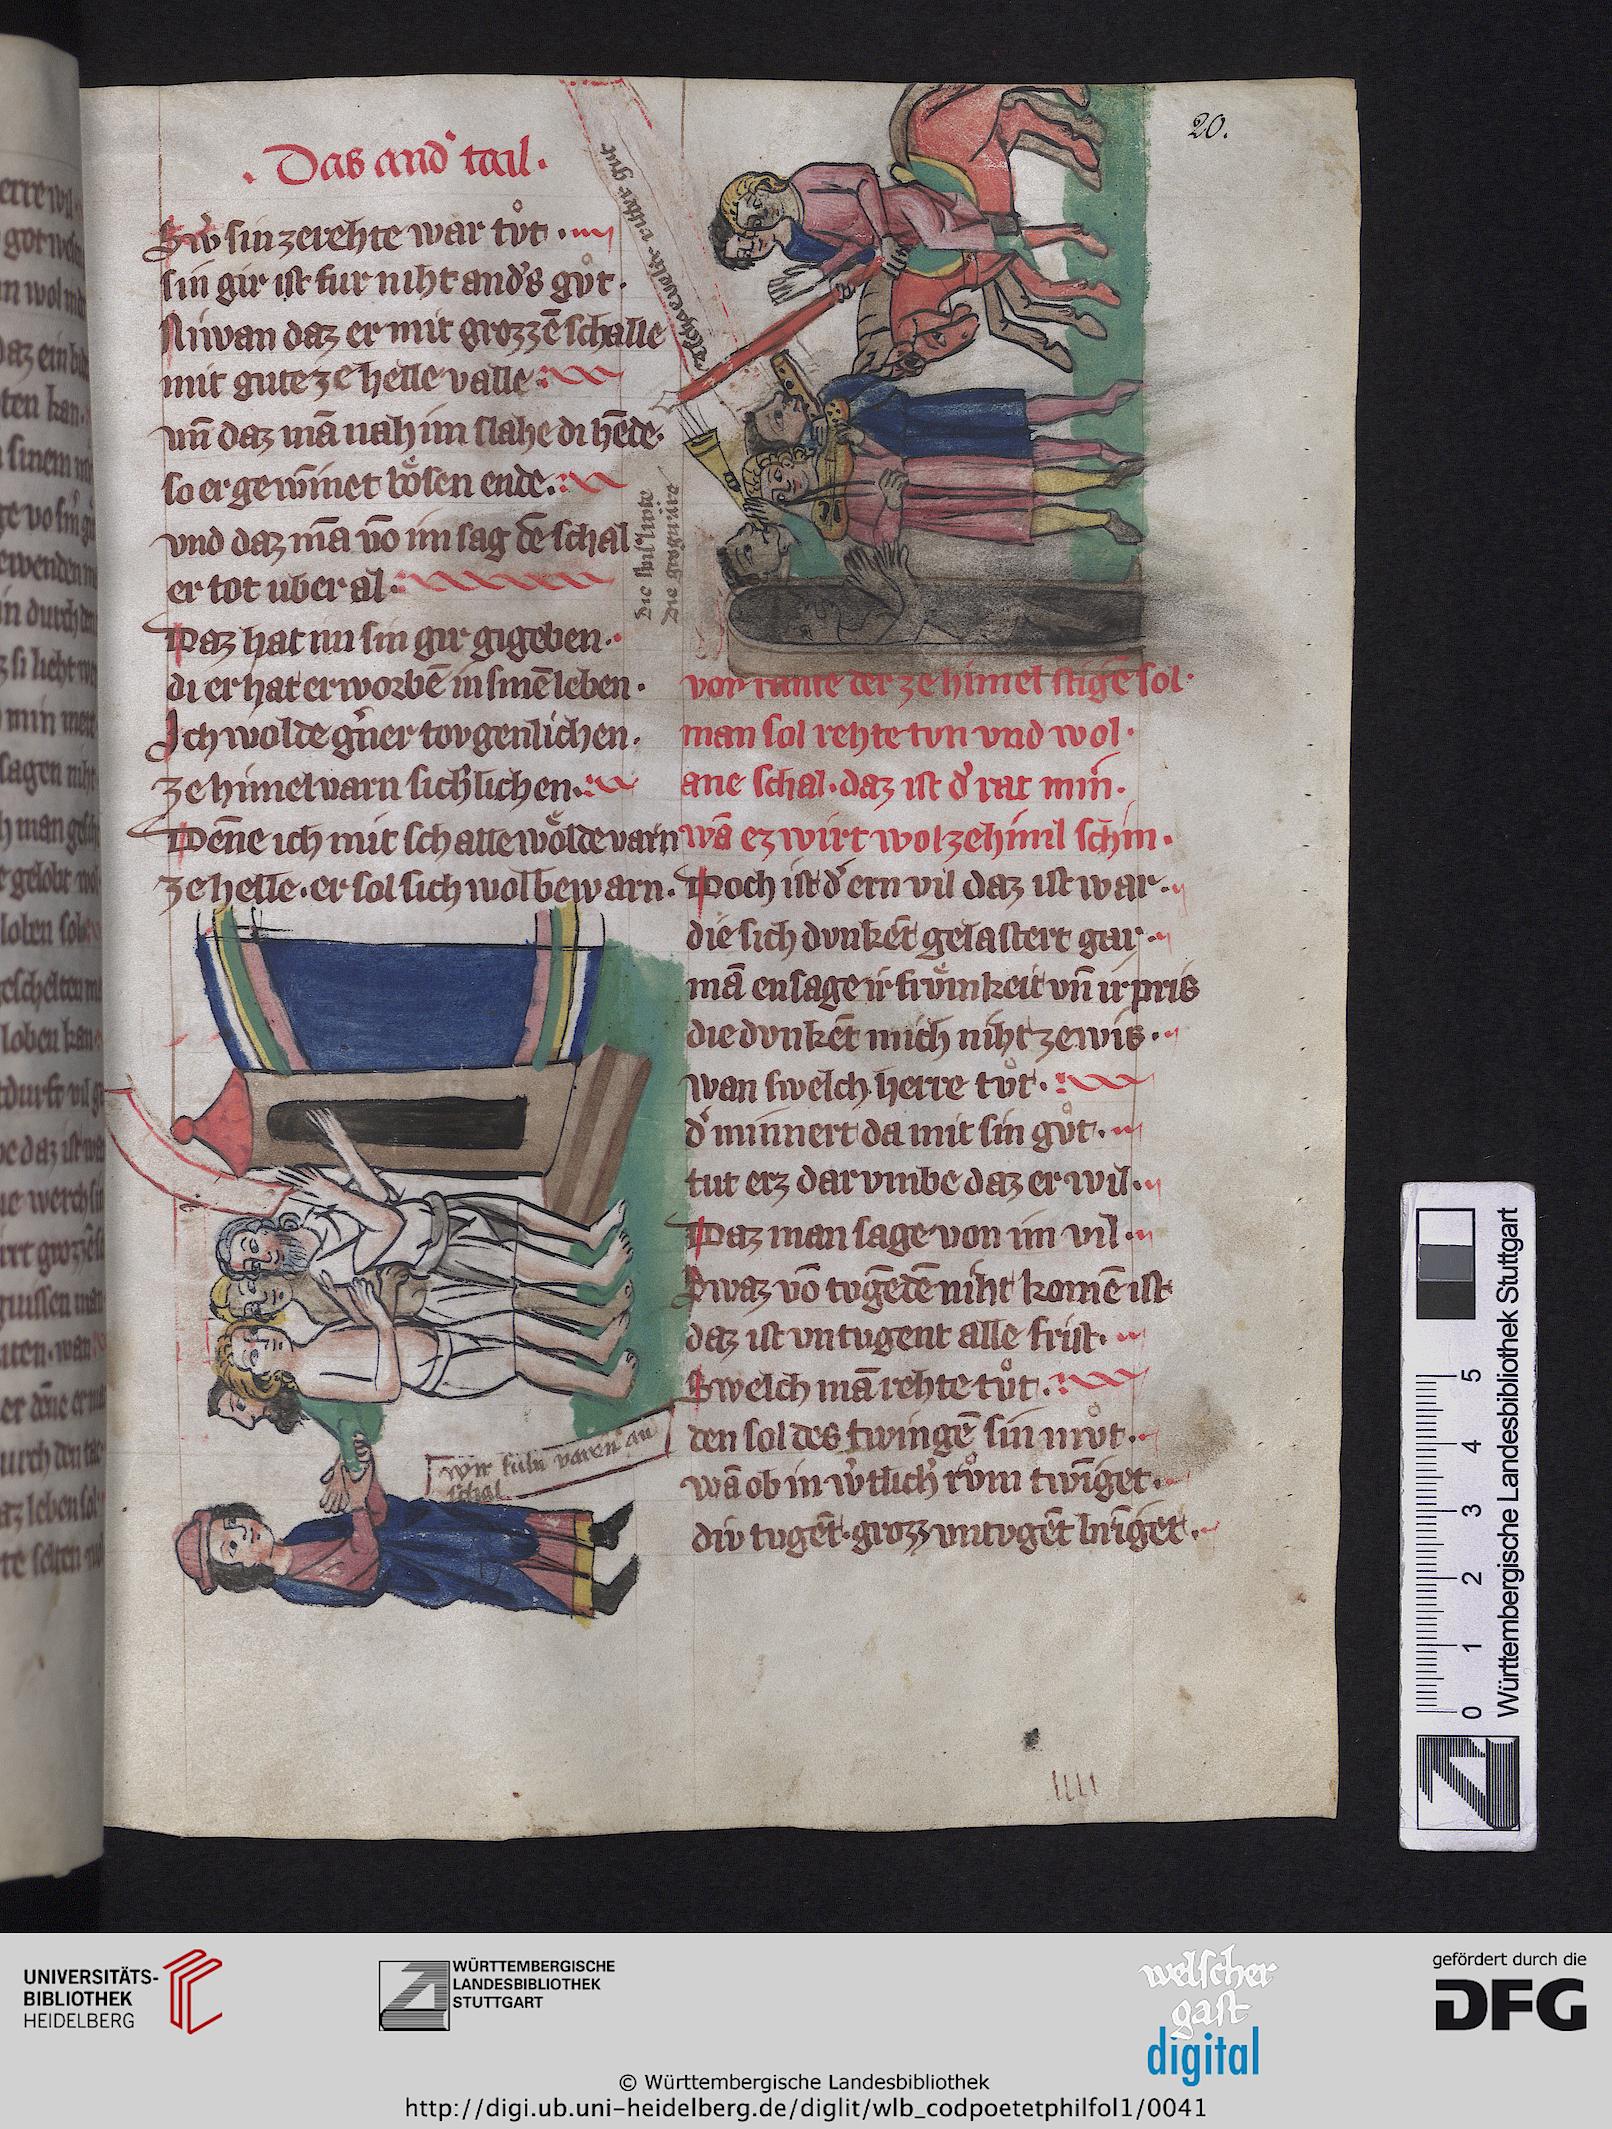 20.
. Das and͛ tail .
Sw͛ sin ze rehte war tůt .
sin gir ist fur niht and͛s gůt .
Niwan daz er mit grozzē schalle
mit gute ze helle valle .
vn̄ daz mā nah im slahe di hēde .
so er gewīnet bôsen ende .
vnd daz mā vō im sag dē schal .
er tot uber al .
Daz hat im sin gir gigeben .
di er hat erworbē in sinē leben .
Ich wolde g͛ner tovgenlichen .
ze himel varn sich͛lichen .
Denne ich mit schalle wölde varn
ze helle . er sol sich wol bewarn .
wir suln varen an
schal
ritter gut
Die spillute
von rume der ze himel stigē sol .
man sol rehte tvn vnd wol .
ane schal . daz ist d͛ rat min .
wā ez wirt wol ze himil schin .
Doch ist d͛ ern vil daz ist war .
die sich dvnkēt gelastert gar .
mā en sage ir frömkeit vn̄ ir pris
die dvnkēt mich niht ze wis .
wan swelch herre tůt .
d͛ minnert da mit sin gůt .
tut erz dar vmbe daz er wil .
Daz man sage von im vil .
Swaz vō tvgēdē niht komē ist
daz ist vntugent alle frist .
Swelch mā rehte tůt .
den sol des twingē sin můt .
wā ob in w͛tlich͛ rům twīget .
div tvgēt . grozz vntvgēt brīget .
0 1 2 3 4 5
Württembergische Landesbibliothek Stuttgart
UNIVERSITÄTS-
BIBLIOTHEK
HEIDELBERG
WÜRTTEMBERGISCHE
LANDESBIBLIOTHEK
STUTTGART
welscher
gast
digital
gefördert durch die
DFG
© Württembergische Landesbibliothek
http://digi.ub.uni-heidelberg.de/diglit/wlb_codpoetetphilfol1/0041